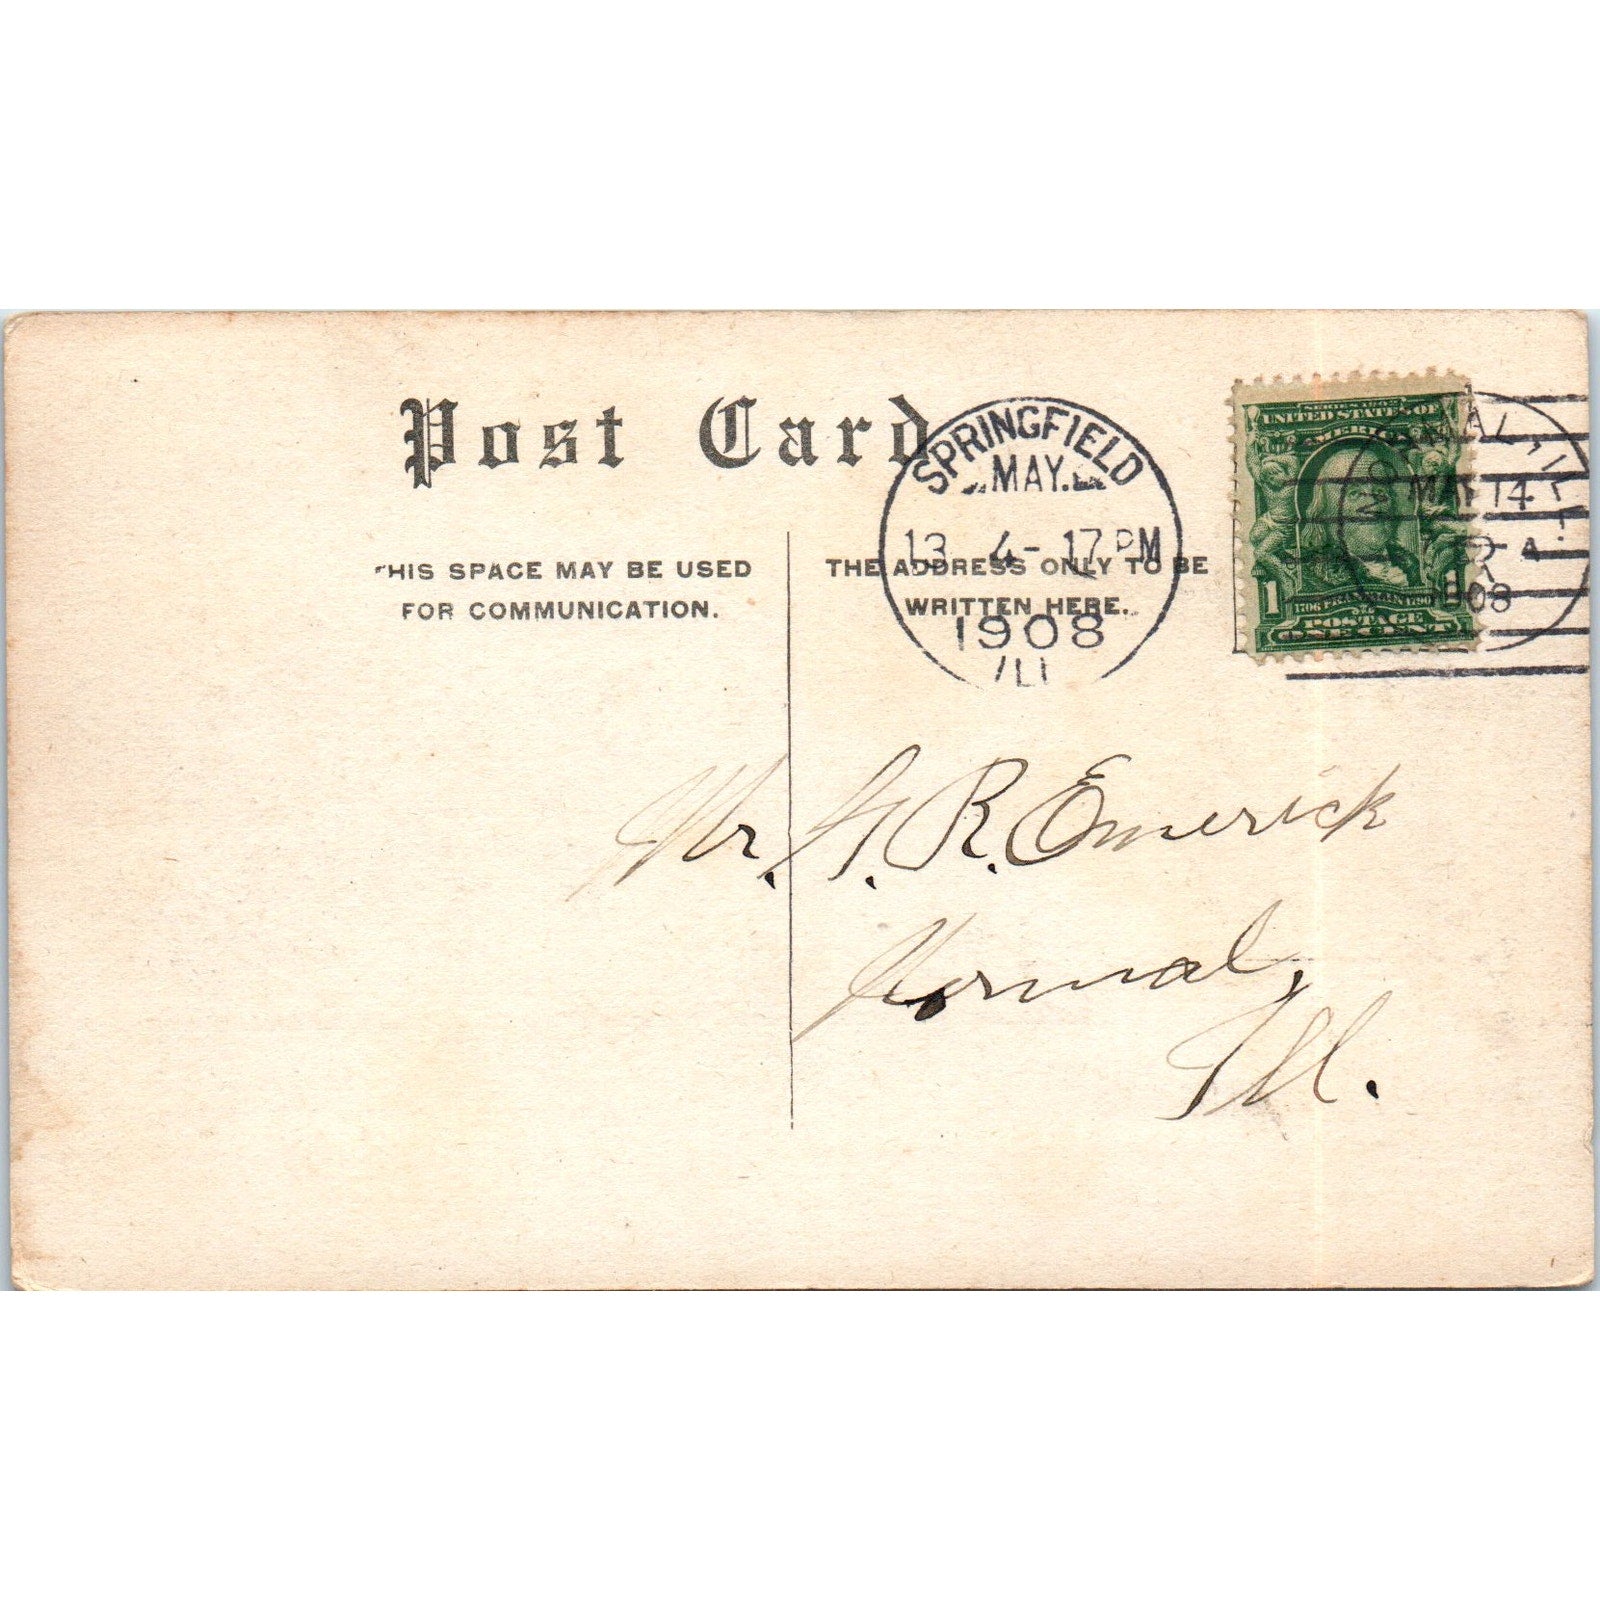 Post Card
THIS SPACE MAY BE USED
FOR COMMUNICATION.
THE ADDRESS ONLY TO BE
WRITTEN HERE.
SPRINGFIELD
MAY.
13 4-17 PM
1908
ILL
SERIES 1902
UNITED STATES OF
AMERICA
1
POSTAGE
ONE CENT
NORMAL, ILL.
MAY 14
1908
Mr. R. Emerick
Normal,
Ill.